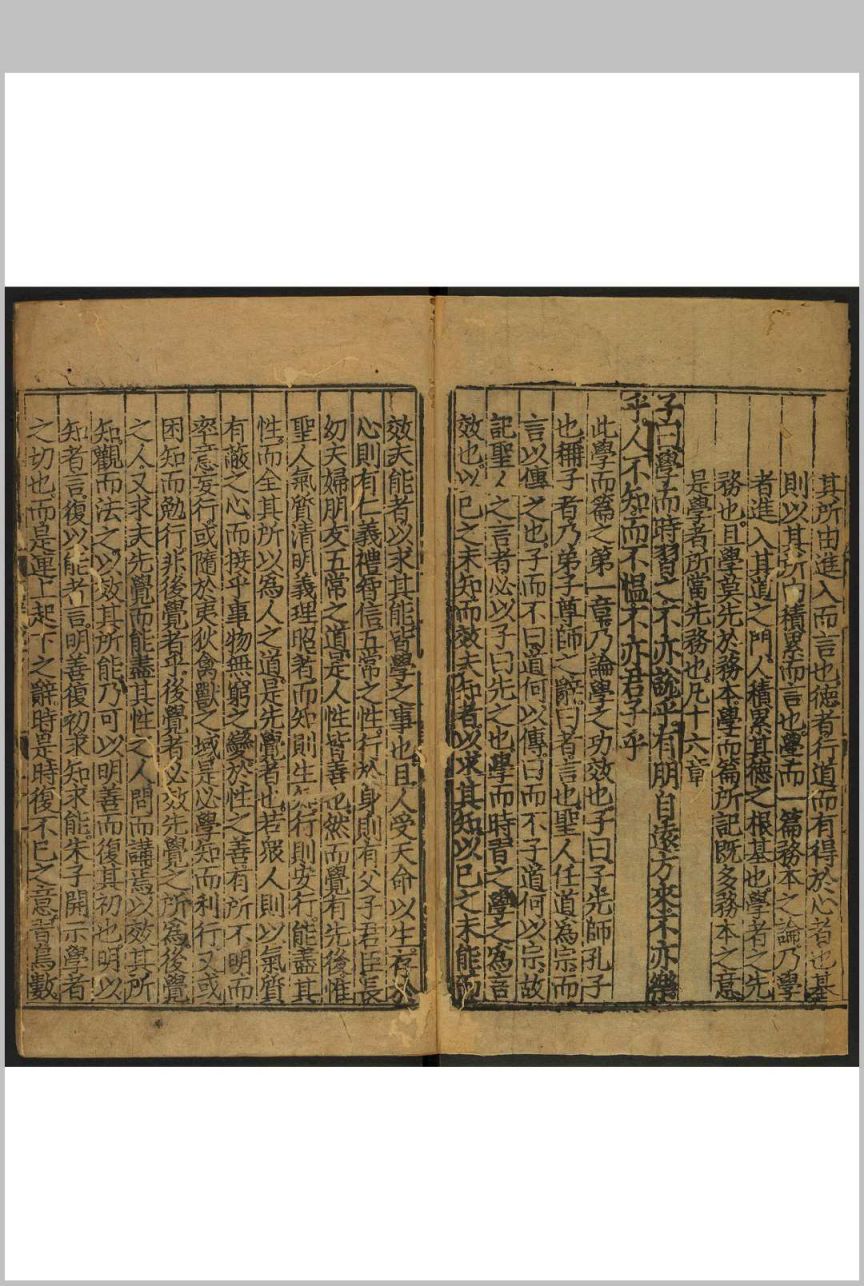 其所由進入而言也德者行道而有得於心者也基
則以其所積累而言也學而一篇務本之論乃學
者進入其道之門人積累其德之根基也學者之先
務也且學莫先於務本學而篇所記旣多務本之意
是學者所當先務也凡十六章
子曰學而時習之不亦說乎有朋自遠方來不亦樂
乎人不知而不慍不亦君子乎
此學而篇之第一章乃論學之功效也子曰子先師孔子
也稱子者乃弟子尊師之辭曰者言也聖人任道為宗而
言以傳之也子而不曰道何以傳曰而不子道何以宗故
記聖人之言者必以子曰先之也學而時習之學之為言
效也以已之未知而效夫知者以求其知以已之未能而
效夫能者以求其能皆學之事也且人受天命以生存於
心則有仁義禮智信五常之性行於身則有父子君臣長
幼夫婦朋友五常之道是人性皆善也然而覺有先後惟
聖人氣質清明義理昭著而知則生知行則安行能盡其
性而全其所以為人之道是先覺者也若衆人則以氣質
有蔽之心而接乎事物無窮之變於性之善有所不明而
率意妄行或隨於夷狄禽獸之域是必學知而利行又或
困知而勉行非後覺者乎後覺者必效先覺之所為後覺
之人又求夫先覺而能盡其性之人問而講焉以效其所
知觀而法之以效其所能乃可以明善而復其初也明以
知者言復以能者言明善復初求知求能朱子開示學者
之切也而是連上起下之辭時是時復不已之意習鳥數